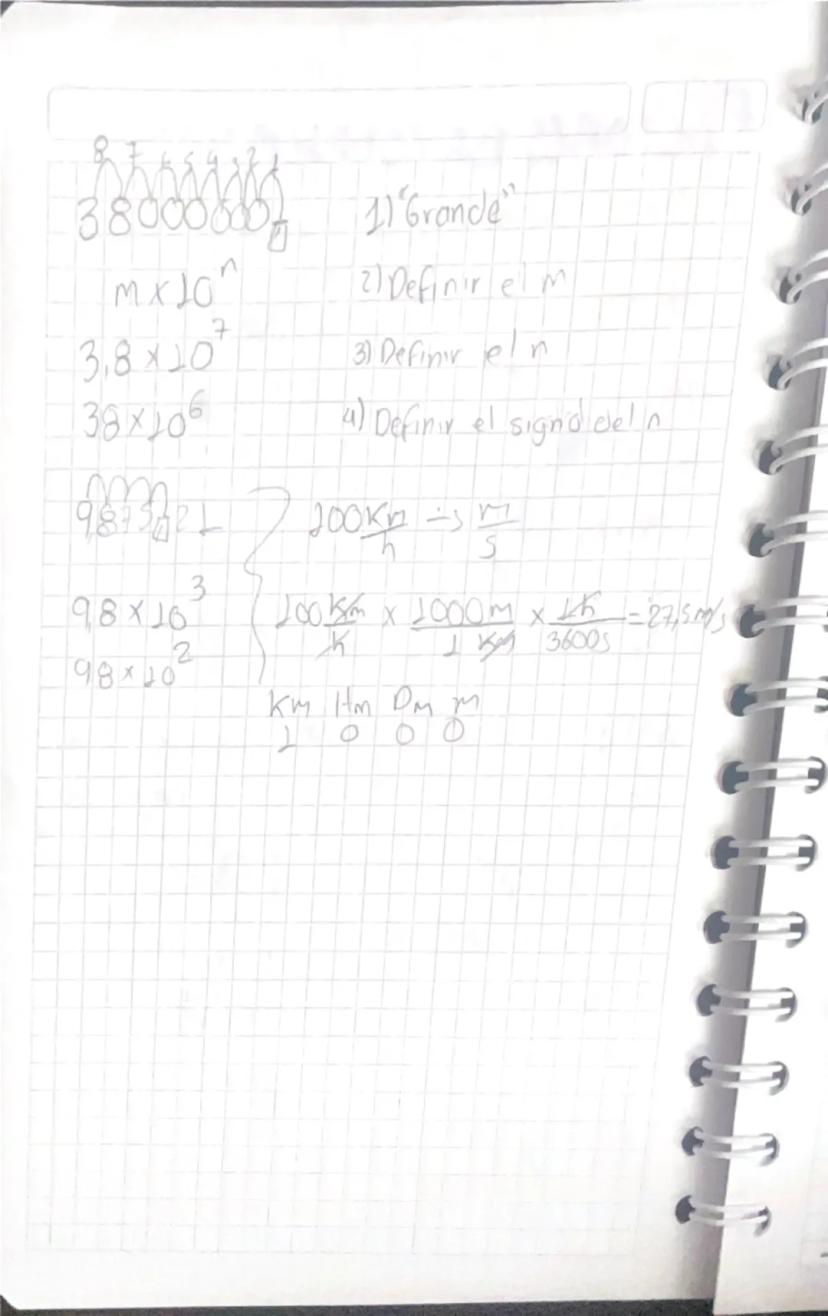 8 7 6 5 4 3 2 1
38000000, 1) "Grande"
m x 10^n 2) Definir el m
3,8 x 10^7 3) Definir el n
38 x 10^6 4) Definir el signo del n
9873,21 100 Km/h -> m/s
9,8 x 10^3 100 Km/h x 1000m/1 Km x 1h/3600s = 27,5 m/s
98 x 10^2
Km Hm Dm m
1 0 0 0